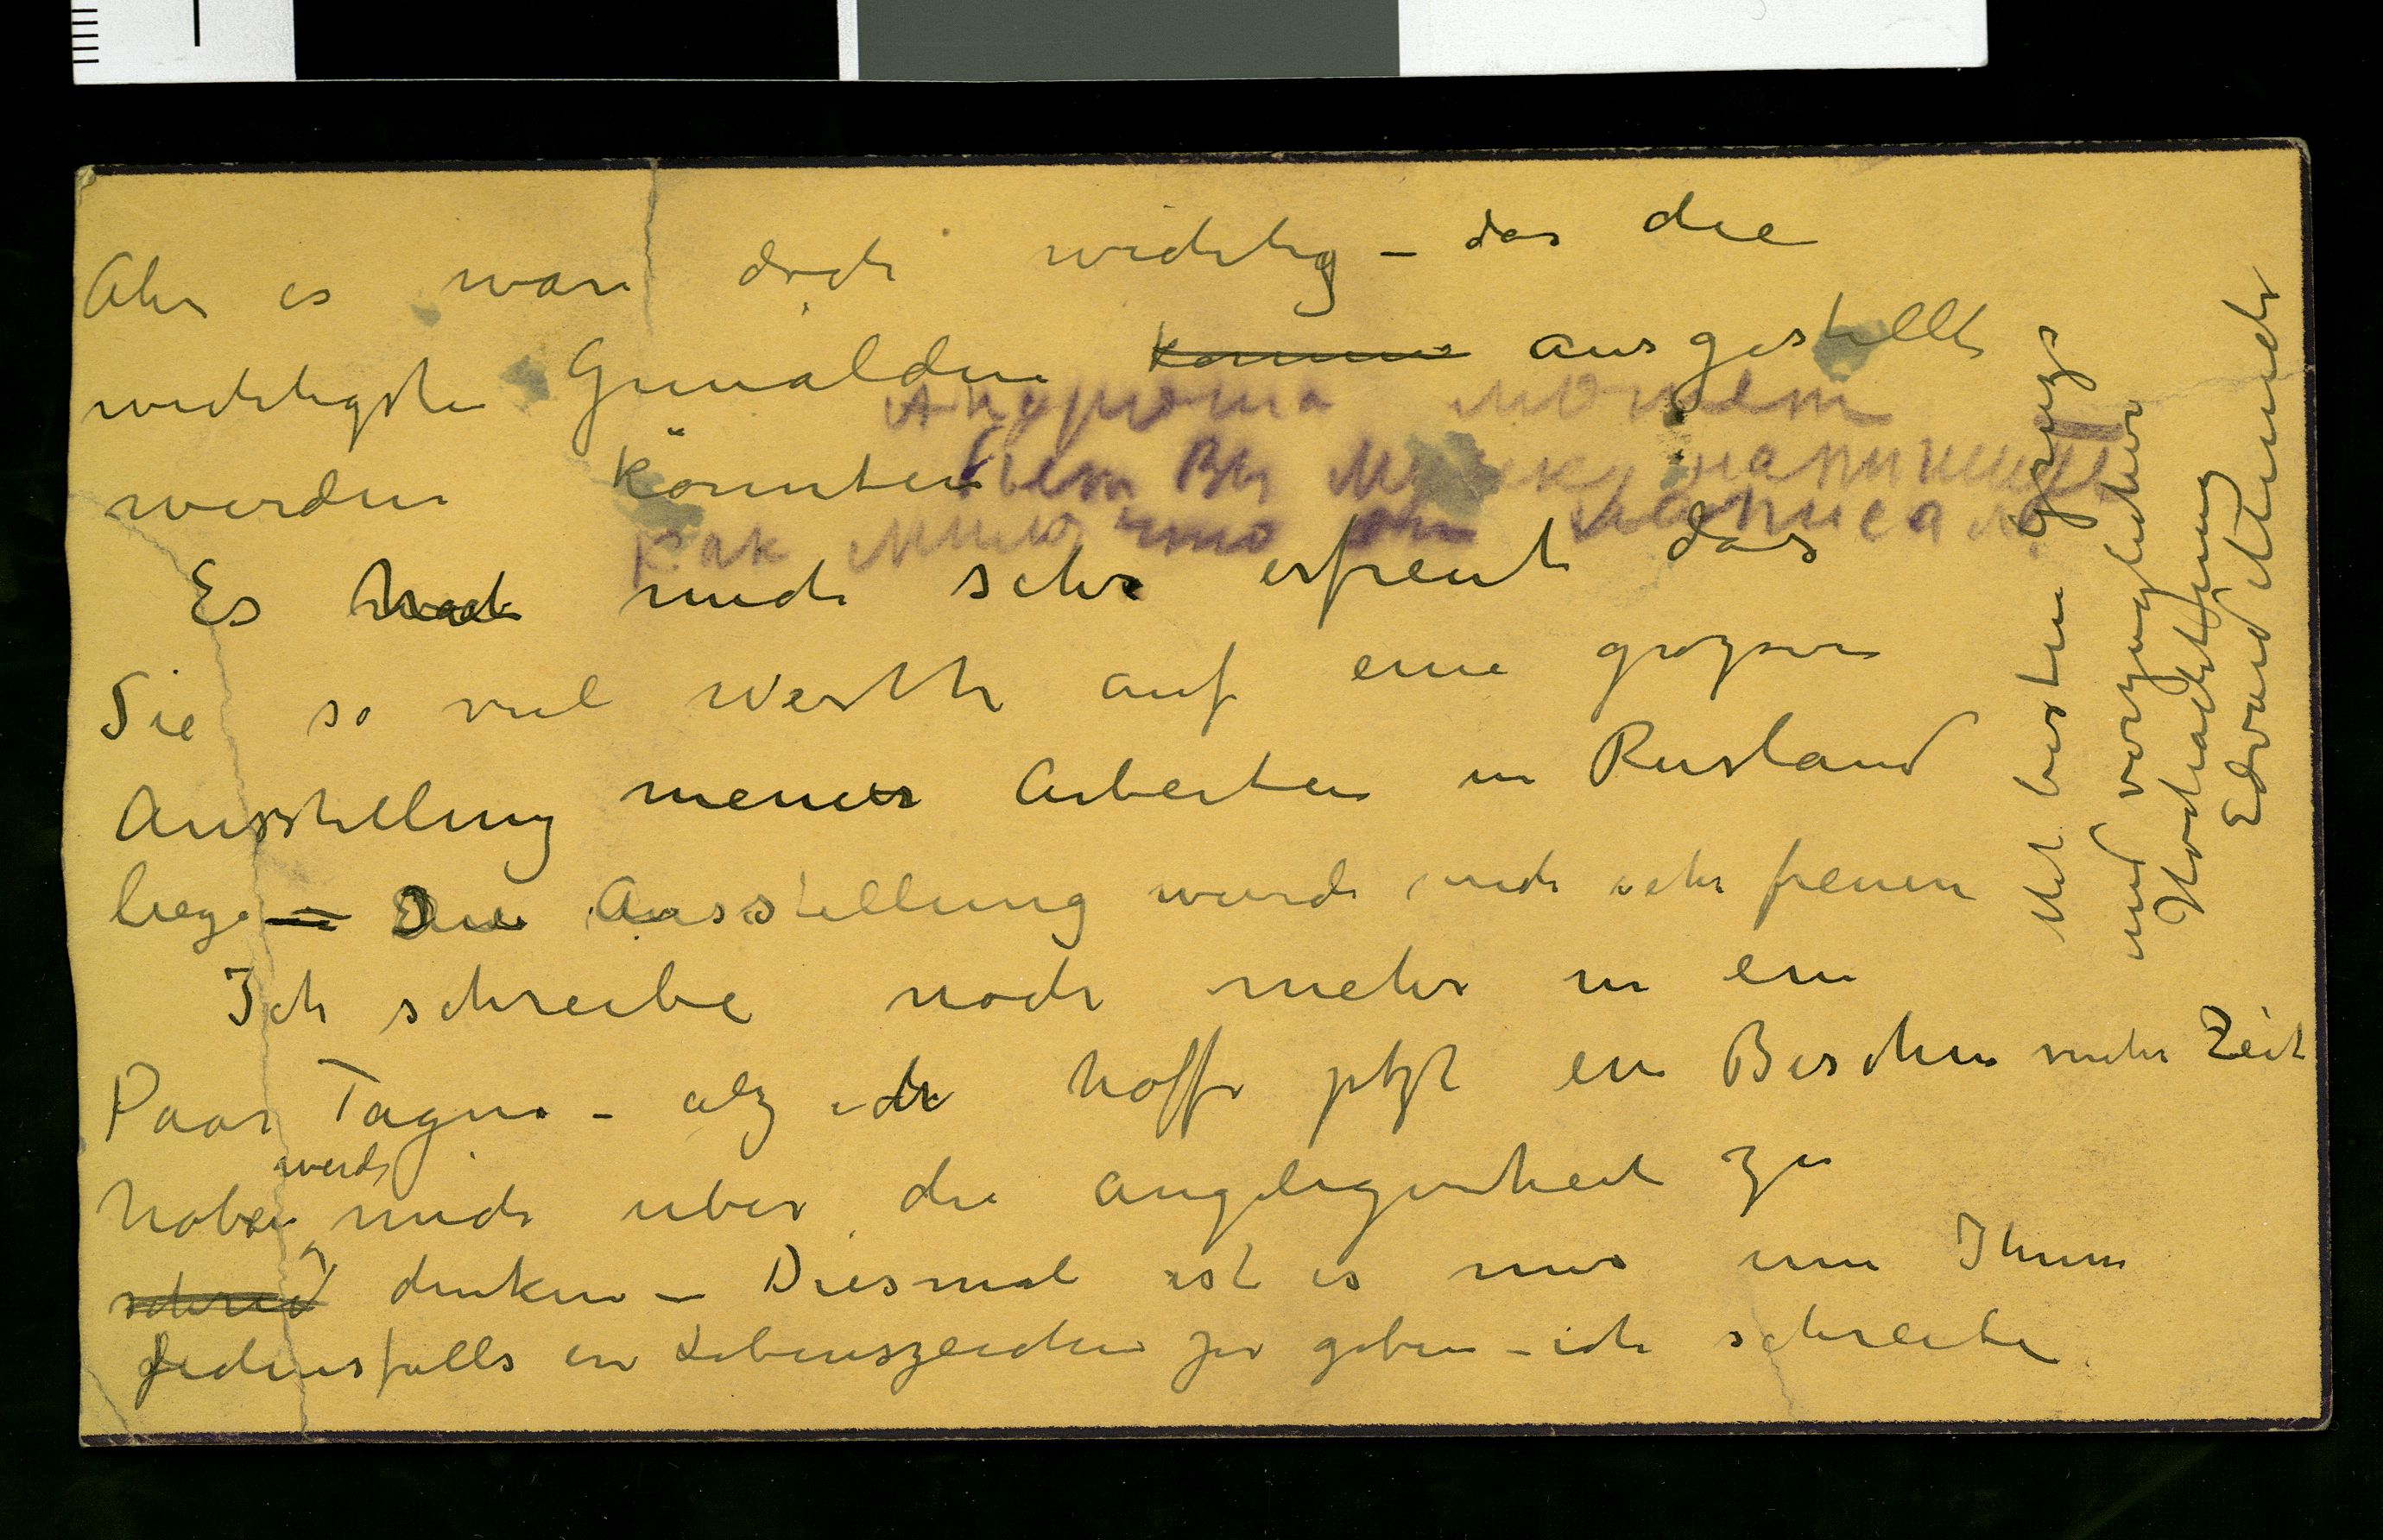 Aber es wäre doch wichtig – das die
wichtigsten Gemälden kommen ausgestellt
werden könnten
Es hat mich sehr erfreut das
Sie so viel Werth auf eine grozsere
Ausstellung meiner Arbeiten in Rusland
legen – Die Ausstellung wurde mich sehr freuen
Ich schreibe noch mehr in ein
Paar Tagen – alz ich hoffe jetzt ein Bischen mehr Zeit
werde
haben mich uber die angelegenheit zu
schrei denken – Diesmal ist es nur um Ihnen
Jedensfalls ein Lebenszeichen zu geben – ich schreibe
Mit besten gruze
und vorzuglicher
Hochachtung
Edvard Munch
может
Вы написал
как что он написал